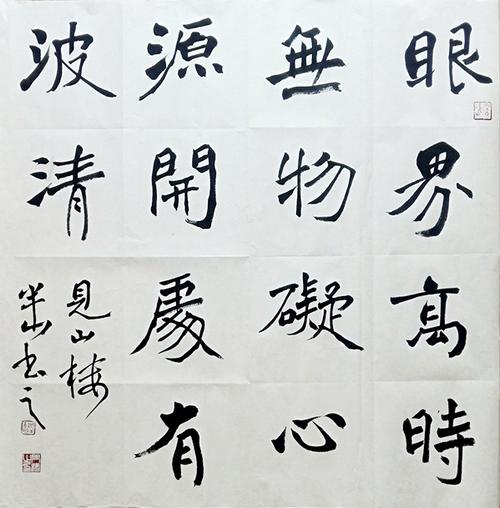 眼界高時
無物礙心
源開處有
波清
見山樓
半山書之